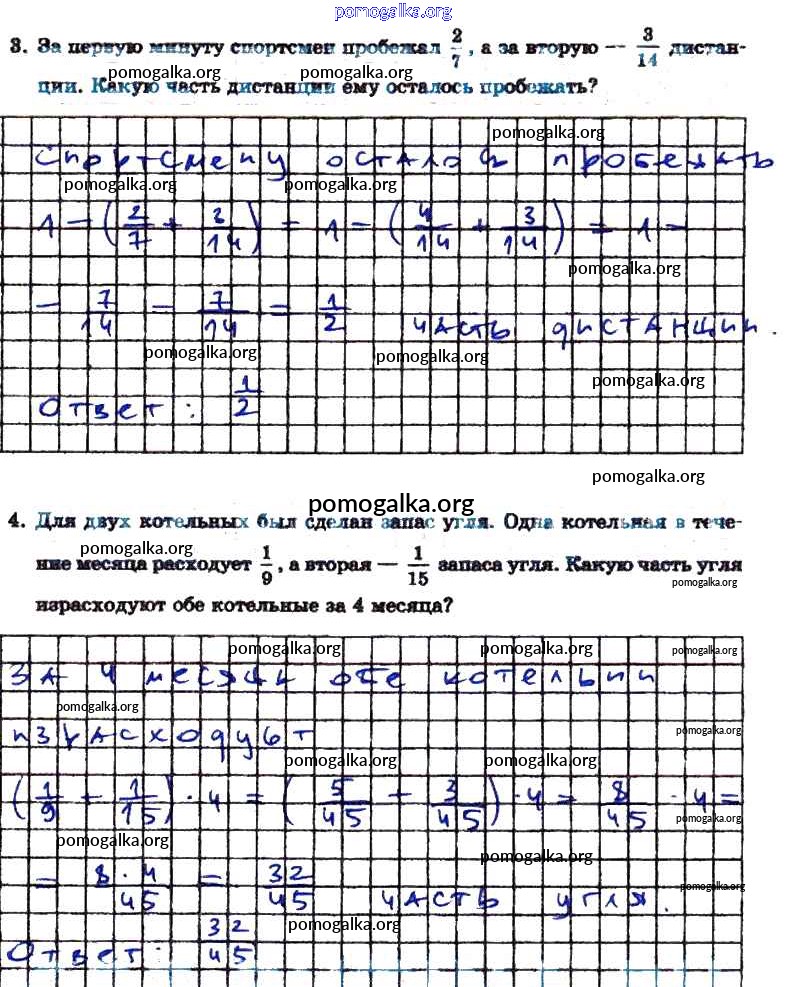 pomogalka.org
3. За первую минуту спортсмен пробежал 2/7, а за вторую — 3/14 дистан-
pomogalka.org pomogalka.org
ции. Какую часть дистанции ему осталось пробежать?
pomogalka.org
Спортсмену осталось пробежать
pomogalka.org pomogalka.org
1 - (2/7 + 3/14) = 1 - (4/14 + 3/14) = 1 -
pomogalka.org
- 7/14 = 7/14 = 1/2 часть дистанции.
pomogalka.org pomogalka.org
pomogalka.org
Ответ: 1/2
pomogalka.org
pomogalka.org
4. Для двух котельных был сделан запас угля. Одна котельная в тече-
pomogalka.org
ние месяца расходует 1/9, а вторая — 1/15 запаса угля. Какую часть угля
pomogalka.org
израсходуют обе котельные за 4 месяца?
pomogalka.org pomogalka.org pomogalka.org
За 4 месяца обе котельни
pomogalka.org
израсходуют
pomogalka.org
pomogalka.org pomogalka.org
(1/9 + 1/15) · 4 = (5/45 + 3/45) · 4 = 8/45 · 4 =
pomogalka.org
pomogalka.org
pomogalka.org
= 8·4/45 = 32/45 часть угля.
pomogalka.org
pomogalka.org
Ответ: 32/45